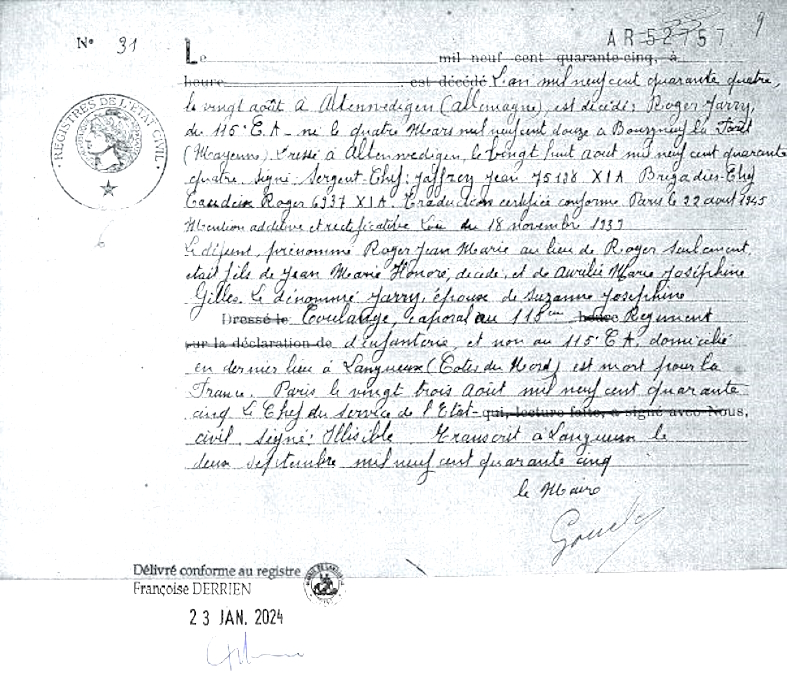 N° 31
AR 52757
9
Le mil neuf cent quarante-cinq, à
heure est décédé L'an mil neuf cent quarante quatre,
le vingt août à Altenwedigen (Allemagne), est décédé: Roger Jarry,
du 115e E.A - né le quatre Mars mil neuf cent douze à Bourgneuf la Forêt
(Mayenne). Dressé à Altenwedigen, le vingt huit août mil neuf cent quarante
quatre. Signé. Sergent-Chef: Jaffrey Jean 75198 XI A Brigadier-Chef
Roger 6337 XI A. Traduction certifiée conforme Paris le 22 août 1945
Mention additive et rectificative Loi du 18 novembre 1939
Le défunt, prénommé Roger Jean Marie au lieu de Roger seulement,
était fils de Jean Marie Honoré, décédé, et de Aurélie Marie Joséphine
Gilles. Le dénommé Jarry, époux de Suzanne Joséphine
Dressé le Coulange, caporal au 115ème heure Régiment
sur la déclaration de d'infanterie, et non au 115e E.A. domicilié
en dernier lieu à Langueux (Côtes du Nord) est mort pour la
France. Paris le vingt trois août mil neuf cent quarante
cinq Le Chef du service de l'Etat- qui, lecture faite, a signé avec Nous,
civil signé: Illisible Transcrit à Langueux le
deux septembre mil neuf cent quarante cinq
le Maire
REGISTRES DE L'ETAT CIVIL
Délivré conforme au registre
Françoise DERRIEN
23 JAN. 2024